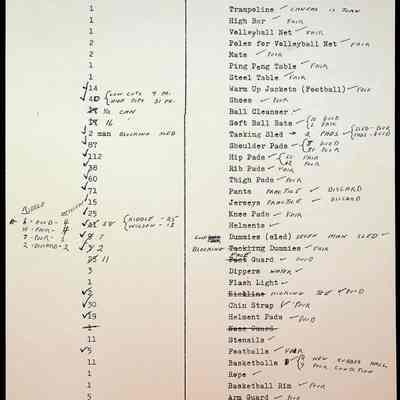 1 Trampoline ✓ CANVAS IS TORN
1 High Bar ✓ FAIR
1 Volleyball Net ✓ FAIR
2 Poles for Volleyball Net ✓ FAIR
2 Mats ✓ POOR
1 Ping Pang Table ✓ FAIR
1 Steel Table ✓ FAIR
✓14 Warm Up Jackets (Football) ✓ FAIR
✓40 { LOW CUTS 9 PR. HIGH TOPS 31 PR. Shoes ✓ POOR
1 CAN Ball Cleanser ✓
16 Soft Ball Bats ✓ { 10 GOOD 6 FAIR
✓2 man BLOCKING SLED Tackling Sled → 2 PADS ✓ { SLED-POOR PADS-GOOD
✓87 Shoulder Pads ✓ POOR
✓112 Hip Pads ✓ FAIR POOR
✓38 Rib Pads ✓ FAIR
✓60 Thigh Pads ✓ POOR
✓71 Pants PRACTICE ✓ DISCARD
✓15 Jerseys PRACTICE ✓ DISCARD
✓25 Knee Pads ✓ FAIR
RIDDELL
6 - GOOD - 4
- FAIR -
- POOR -
2 - DISCARD - 2
✓ 38 { RIDDLE - 25 WILSON - 13 Helmets ✓
✓ Dummies (sled) SEVEN MAN SLED ✓
✓ 2 BLOCKING Tackling Dummies ✓ FAIR
11 FACE Guard ✓ GOOD
3 Dippers WATER ✓
1 Flash Light ✓
✓2 KICKING TEE ✓ GOOD
✓30 Chin Strap ✓ POOR
✓19 Helment Pads ✓ GOOD
1 Nose Guard
11 Stensils ✓
✓5 Footballs ✓ FAIR
11 Basketballs NEW RUBBER BALL POOR CONDITION
1 Rope ✓
1 Basketball Rim ✓ POOR
5 Arm Guard ✓ POOR